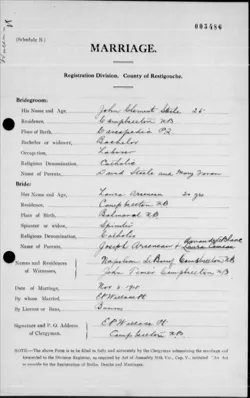 003486
(Schedule B.)
MARRIAGE.
Registration Division, County of Restigouche.
Bridegroom:
His Name and Age, John Clement Steele 25
Residence, Campbellton NB
Place of Birth, Cascapedia P.Q.
Bachelor or widower, Bachelor
Occupation, Laborer
Religious Denomination, Catholic
Name of Parents, David Steele and Mary
Bride:
Her Name and Age, Laura Arseneau 20 yrs
Residence, Campbellton NB
Place of Birth, Balmoral NB
Spinster or widow, Spinster
Religious Denomination, Catholic
Name of Parents, Joseph Arseneau &
Names and Residences of Witnesses, Napoleon Campbellton NB
John Campbellton NB
Date of Marriage, Nov
By whom Married, EP Wallace Pt
By License or Banns, Banns
Signature and P. O. Address of Clergyman, EP Wallace Pt
Campbellton N.B.
NOTE.—The above Form is to be filled in fully and accurately by the Clergyman solemnizing the marriage and
forwarded to the Division Registrar, as required by Act of Assembly
to provide for the Registration of Births, Deaths and Marriages.